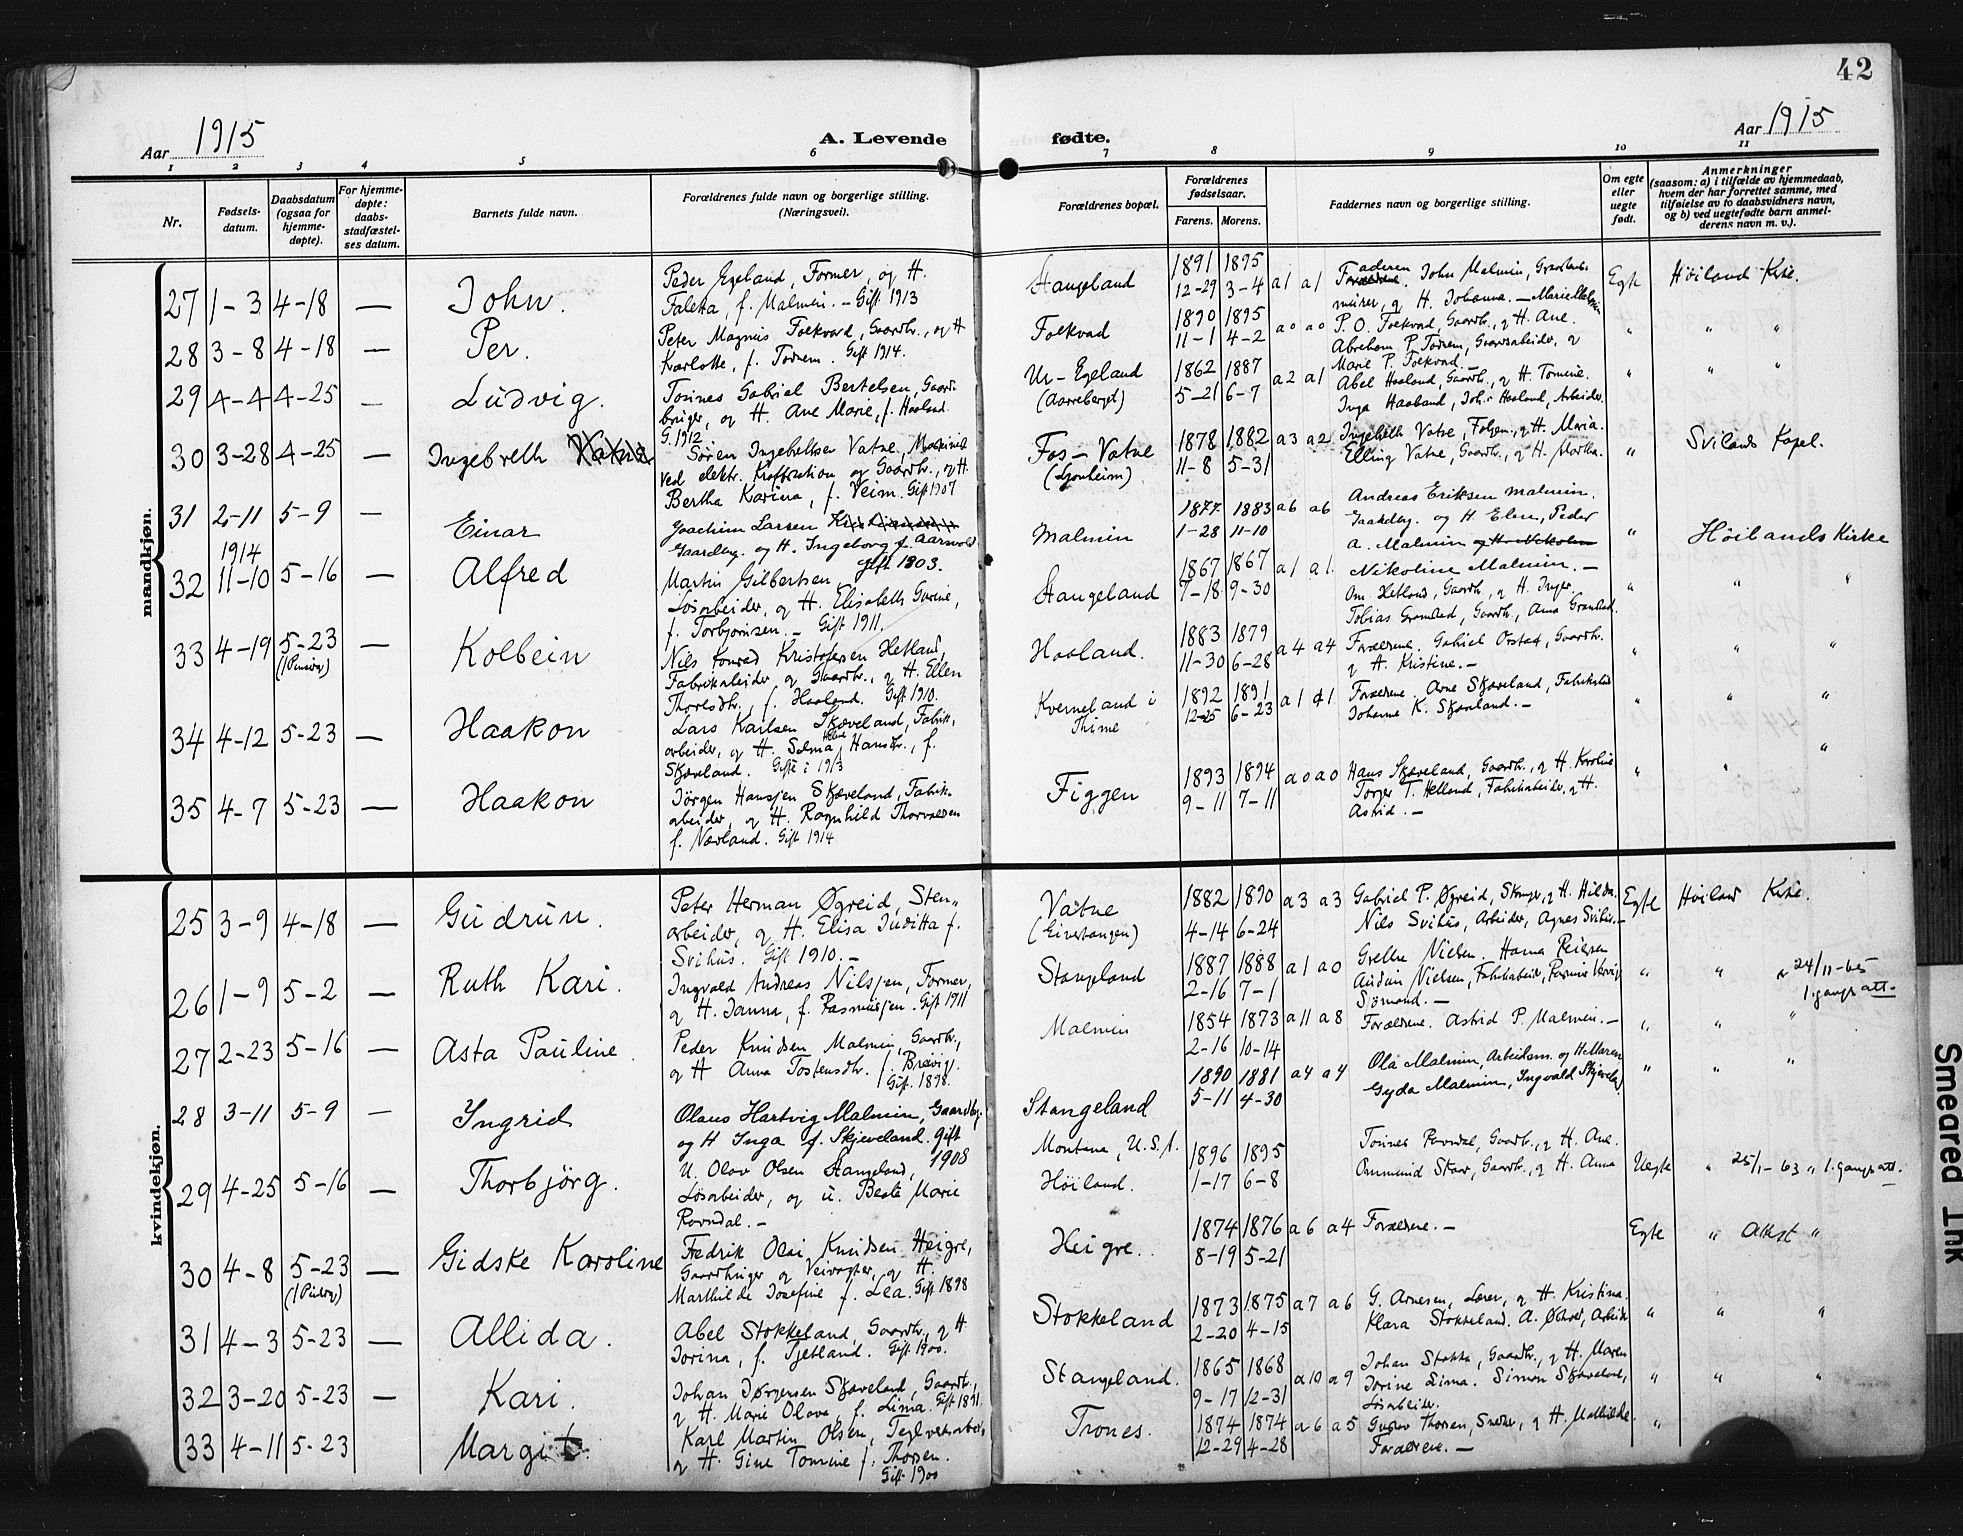 42
Aar 1915
A. Levende fødte.
Aar 1915
1 2 3 4 5 6 7 8 9 10 11
Nr.
Fødsels-
datum.
Daabsdatum
(ogsaa for
hjemme-
døpte).
For hjemme-
døpte:
daabs-
stadfæstel-
ses datum.
Barnets fulde navn.
Forældrenes fulde navn og borgerlige stilling.
(Næringsvei).
Forældrenes bopæl.
Forældrenes
fødselsaar.
Farens. Morens.
Faddernes navn og borgerlige stilling.
Om egte
eller
uegte
født.
Anmerkninger
(saasom: a) i tilfælde av hjemmedaab,
hvem der har forrettet samme, med
tilføielse av to daabsvidners navn,
og b) ved uegtefødte barn anmel-
derens navn m. v.).
mandkjøn.
27 1-3 4-18 — John.
Peder Egeland, Former, og H.
Faleka, f. Malmin. — Gift 1913
Stangeland
1891 1895
12-29 3-4 a1 a1
John Malmin,
og H. Johanna. —
Egte Høiland Krke.
28 3-8 4-18 — Per.
Peter Magnus Folkvord, Gaardbr., og H
Karlotte, f. Todnem. Gift 1914.
Folkvord
1890 1895
11-1 4-2 a0 a0
P. O. Folkvord, Gaardb., og H. Ane.
Abraham P. Todnem, Gaardsarbeider, og
Marie P. Folkvord. —
" " "
29 4-4 4-25 — Ludvig.
Tønnes Gabriel Bertelsen, Gaard-
bruger, og H. Ane Marie, f. Haaland.
G. 1912
Ur-Egeland
(Aarreberget)
1862 1887
5-21 6-7 a2 a1
Abel Haaland, Gaardb., og H. Tomine.
Inga Haaland, Joh. Haaland, Arbeider.
" " "
30 3-28 4-25 — Ingebreth Vatne
Søren Ingebretsen Vatne, Maskinist
ved elektr. Kraftstation og Gaardbr., og H.
Bertha Karina, f. Veim. Gift 1907
Fos-Vatne
(Ljonheim)
1878 1882
11-8 5-31 a3 a2
Ingebreth Vatne, og H. Maria.
Elling Vatne, Gaardb., og H. Martha.
" Svilands Kapel.
31 2-11 5-9 — Einar
Joachim Larsen Kristiansen
Gaardbg. og H. Ingeborg f. Aarsvold
gift 1903.
Malmin
1877 1883
1-28 11-10 a6 a6
Andreas Eriksen Malmin.
Gaardbg. og H Elen, Peder
A. Malmin og H. Nikoline
Nikoline Malmin. —
" Høilands Kirke
1914
32 11-10 5-16 — Alfred
Martin Gilbertsen,
Løsarbeider, og H. Elisabeth Gurine,
f. Torbjørnsen. — Gift 1911.
Stangeland
1867 1867
7-18 9-30 a1 a1.
Om. Hetland, Gaardb., og H. Inger.
Tobias Gramstad, Gaardb., Anna Gramstad.
" " "
33 4-19 5-23 — Kolbein
Nils Konrad Kristofersen Hetland,
Fabrikarbeider og Gaardbr., og H. Ellen
Thoresdtr., f. Haaland. Gift 1910.
Haaland.
1883 1879
11-30 6-28 a4 a4
Forældrene. Gabriel Orstad, Gaardbr.
og H. Kristine. —
" " "
34 4-12 5-23 — Haakon
Lars Karlsen Skjæveland, Fabrik-
arbeider, og H. Selma Hansdtr., f.
Skjæveland. Gifte i 1913
Kverneland i
Thime
1892 1891
12-25 6-23 a1 d1
Forældrene. Arne Skjæveland, Fabrikarb.
Johanne K. Skjæveland. —
" " "
35 4-7 5-23 — Haakon
Jörgen Hansen Skjæveland, Fabrik-
arbeider, og H. Ragnhild Thorvaldsen
f. Nævland. Gift 1914
Figgen
1893 1894
9-11 7-11 a0 a0
Hans Skjæveland, Gaardbr., og H. Karoline
Torger T. Helland, Fabrikarbeider, og H.
Astrid. —
" " "
kvindekjøn.
25 3-9 4-18 — Gudrun.
Peter Herman Øgreid, Sten-
arbeider, og H. Elisa Juditta f.
Svihus. Gift 1910. —
Vatne
(Eivertangen)
1882 1890
4-14 6-24 a3 a3
Gabriel P. Øgreid, og H. Hilda.
Nils Svihus, Arbeider, Agnes Svihus. —
Egte Høiland Krke.
26 1-9 5-2 — Ruth Kari.
Ingvald Andreas Nilsjen, Former,
og H. Janna, f. Rasmusjen. Gift 1911
Stangeland
1887 1888
2-16 7-1 a1 a0
Grethe Nielsen. Hanna Reiersen
Audun Nielsen, Fabrikarbeid,
Sjømand. —
" " " 24/11-65
1. gangs att.
27 2-23 5-16 — Asta Pauline.
Peder Knudsen Malmin, Gaardb.,
og H Anna Tostensdtr. f. Breivig.
Gift. 1898.
Malmin
1854 1873
2-16 10-14 a11 a8
Forældrene. Astrid P. Malmin. —
" " "
28 3-11 5-9 — Ingrid
Olaus Hartvig Malmin, Gaardbg.
og H Inga f. Skjeveland. gift
1908
Stangeland
1890 1881
5-11 4-30 a4 a4
Ola Malmin, Arbeidsm. og H Maren
Gyda Malmin, Ingvald Skjeveland
" " "
29 4-25 5-16 — Thorbjörg.
U. Olav Olsen Stangeland,
Løsarbeider, og u. Beate Marie
Ravndal. —
Montana, U.S.A.
Høiland.
1896 1895
1-17 6-8
Tønnes Ravndal, Gaardb., og H. Ane.
Ommund Gaardb., og H. Anna
Uegte " 25/1-63 " 1. gangs att.
30 4-8 5-23 — Gidske Karoline
Fredrik Olai Knudsen Heigre,
Gaardbruger og Veivogter, og H.
Marthilde Josefine f. Lea. Gift 1898
Heigre.
1874 1876
8-19 5-21 a6 a4
Forældrene. —
Egte " Attest "
31 4-3 5-23 — Allida.
Abel Stokkeland, Gaardb., og H
Jorina, f. Tjetland. Gift 1900.
Stokkeland
1873 1875
2-20 4-15 a7 a6
G. Arnesen, Lærer, og H. Kristina.
Klara Stokkeland. A. Arbeider
" " "
32 3-20 5-23 — Kari.
Johan Jørgensen Skjæveland, Gaardb.,
og H. Marie Olava, f. Lima. Gift 1891.
Stangeland.
1865 1868
9-17 12-31 a10 a9
Johan Stokka, Gaardb., og H. Maren
Jorine Lima. Simon Skjæveland,
Løsarbeider.
" " "
33 4-11 5-23 Margit
Karl Martin Olsen, Teglverksarbeid.,
og H. Gine Tomine f. Thorsen.
Gift. 1900
Trones.
1874 1874
12-29 4-28 a6 a5
Gustav Thorsen, Snedker, og H. Mathilde.
Forældrene. —
"
Smeared Ink